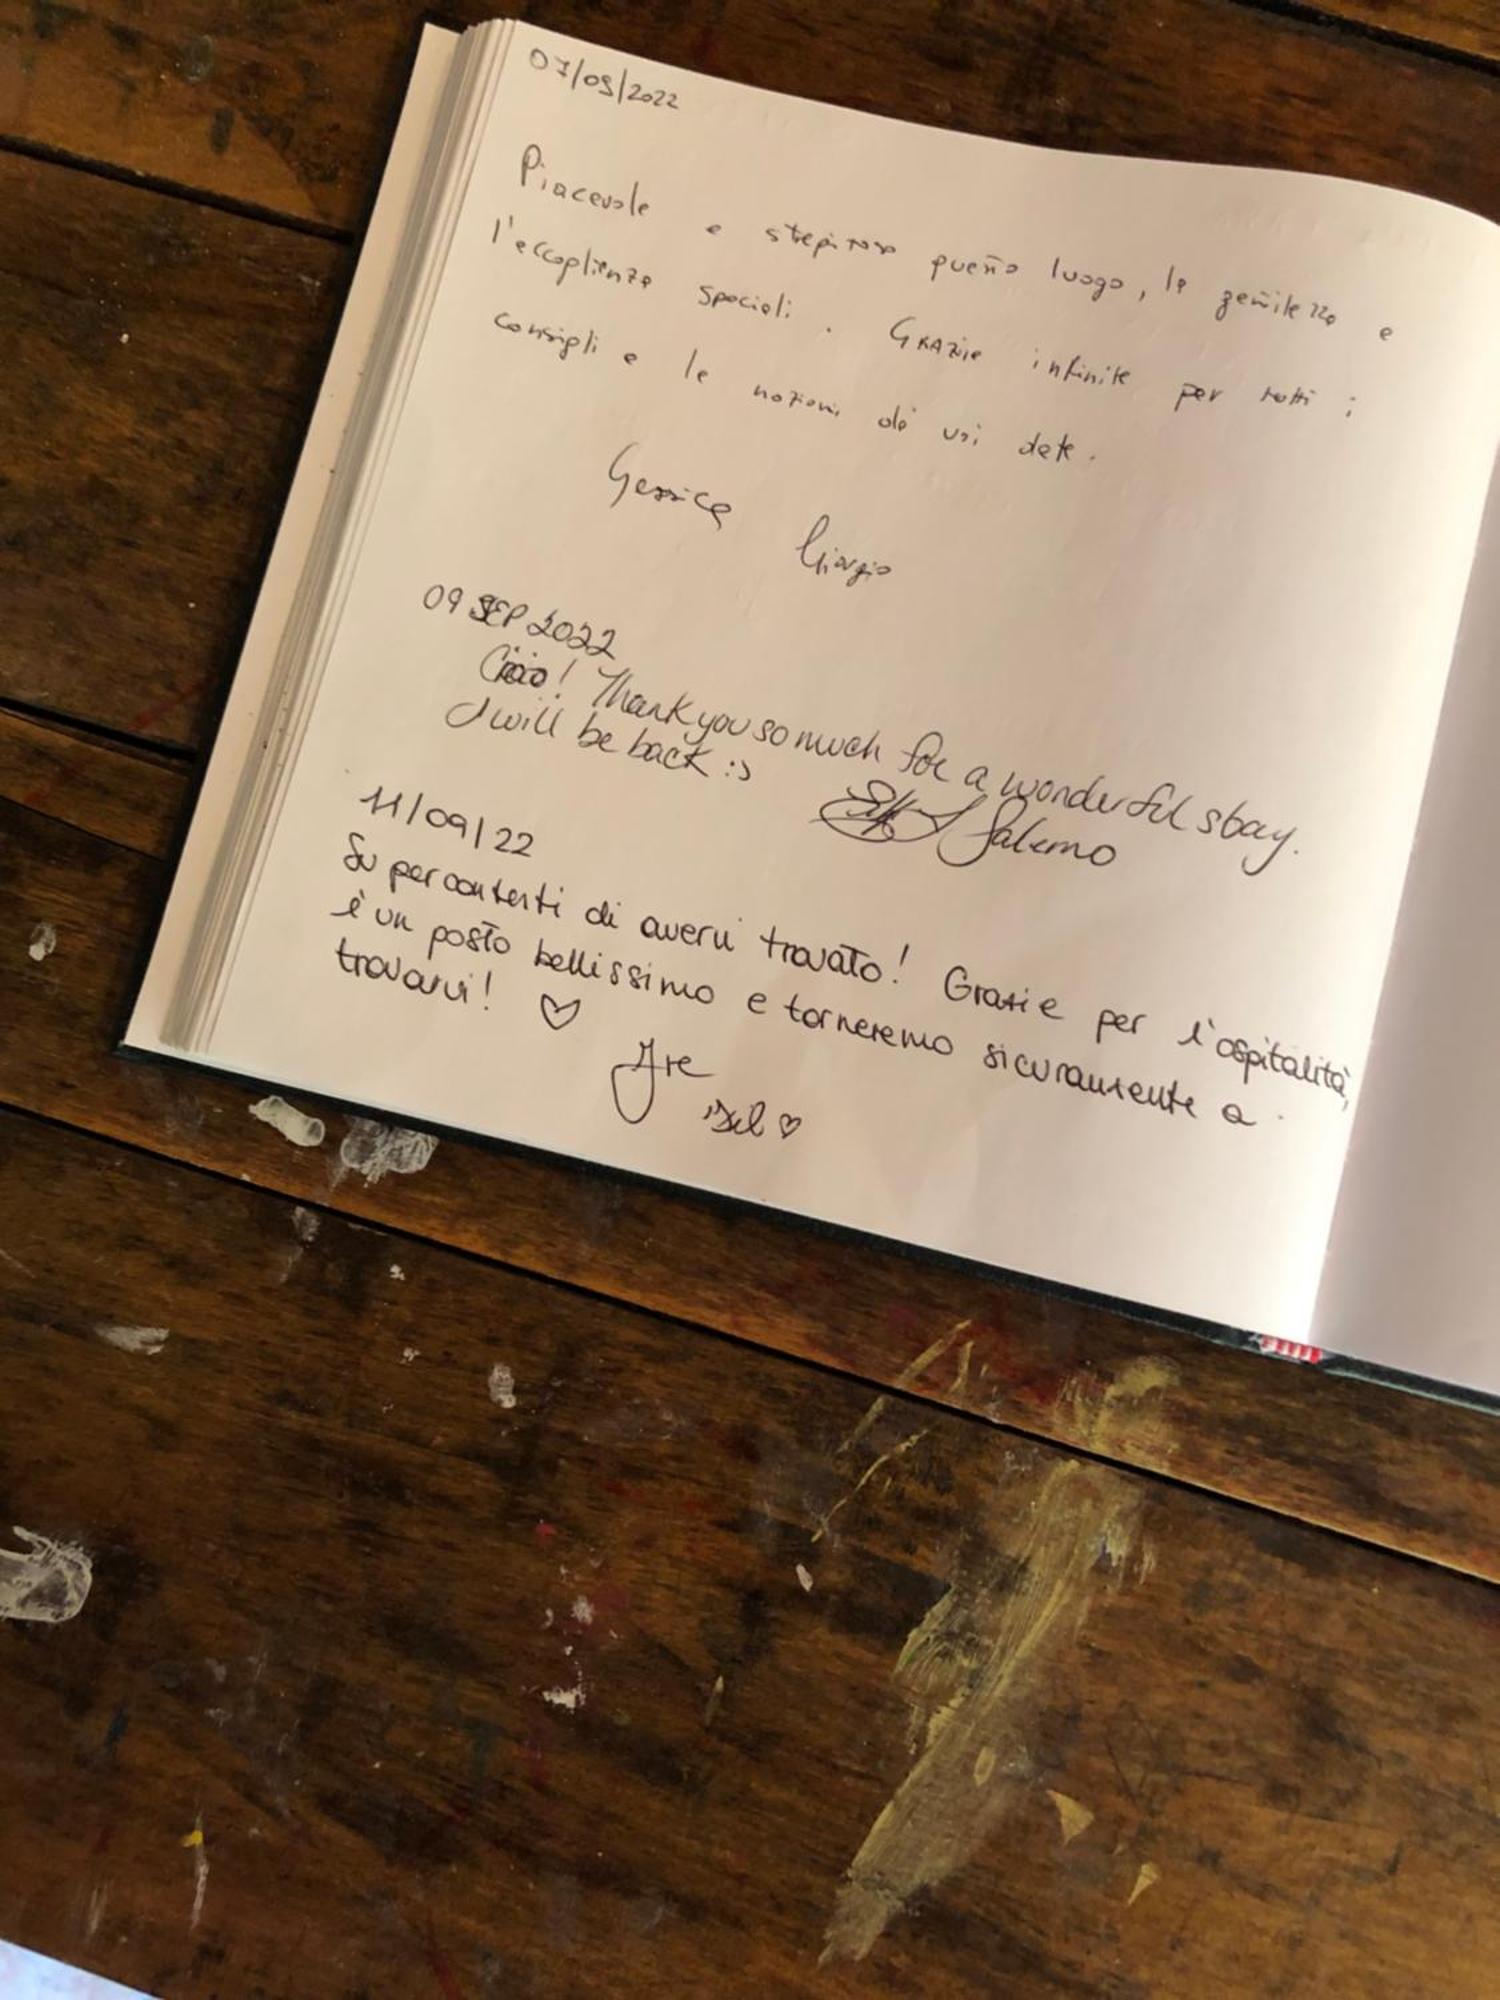 07/09/2022
Piacevole e strepitoso questo luogo, la gentilezza e
l'accoglienza speciali. GRAZIE infinite per tutti i
consigli e le nozioni da voi date.
Gessica
Giorgio
09 SEP 2022
Ciao! Thank you so much for a wonderful stay.
I will be back :)
Salerno
11/09/22
Super contenti di avervi trovato! Grazie per l'ospitalità,
è un posto bellissimo e torneremo sicuramente a
trovarvi! ♡
Ire
♡